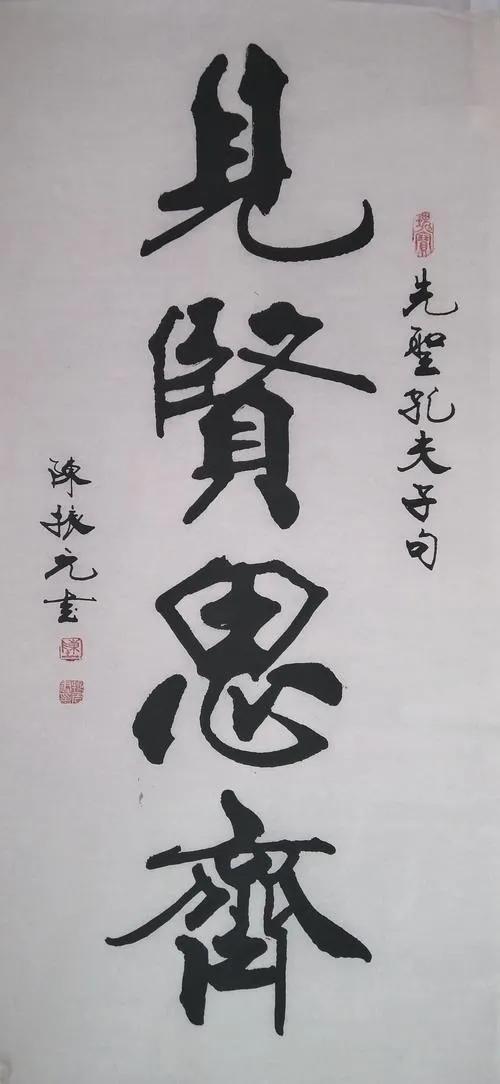 先聖孔夫子句
見賢思齊
陳振元書